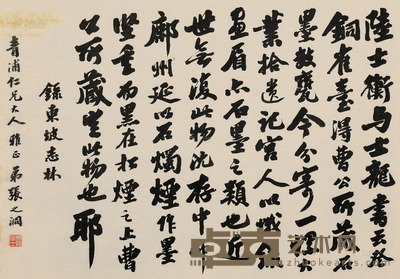 陸士衡与士龍書云登
銅雀臺得曹公所藏石
墨數甕今分寄一螺大
業拾遺記宮人以蛾綠
畫眉亦石墨之類也近
世無復此物沈存中帥
鄜州延以石燭煙作墨
堅重而黑在松煙之上曹
公所藏豈此物也耶
錄東坡志林
青浦仁兄大人雅正弟張之洞